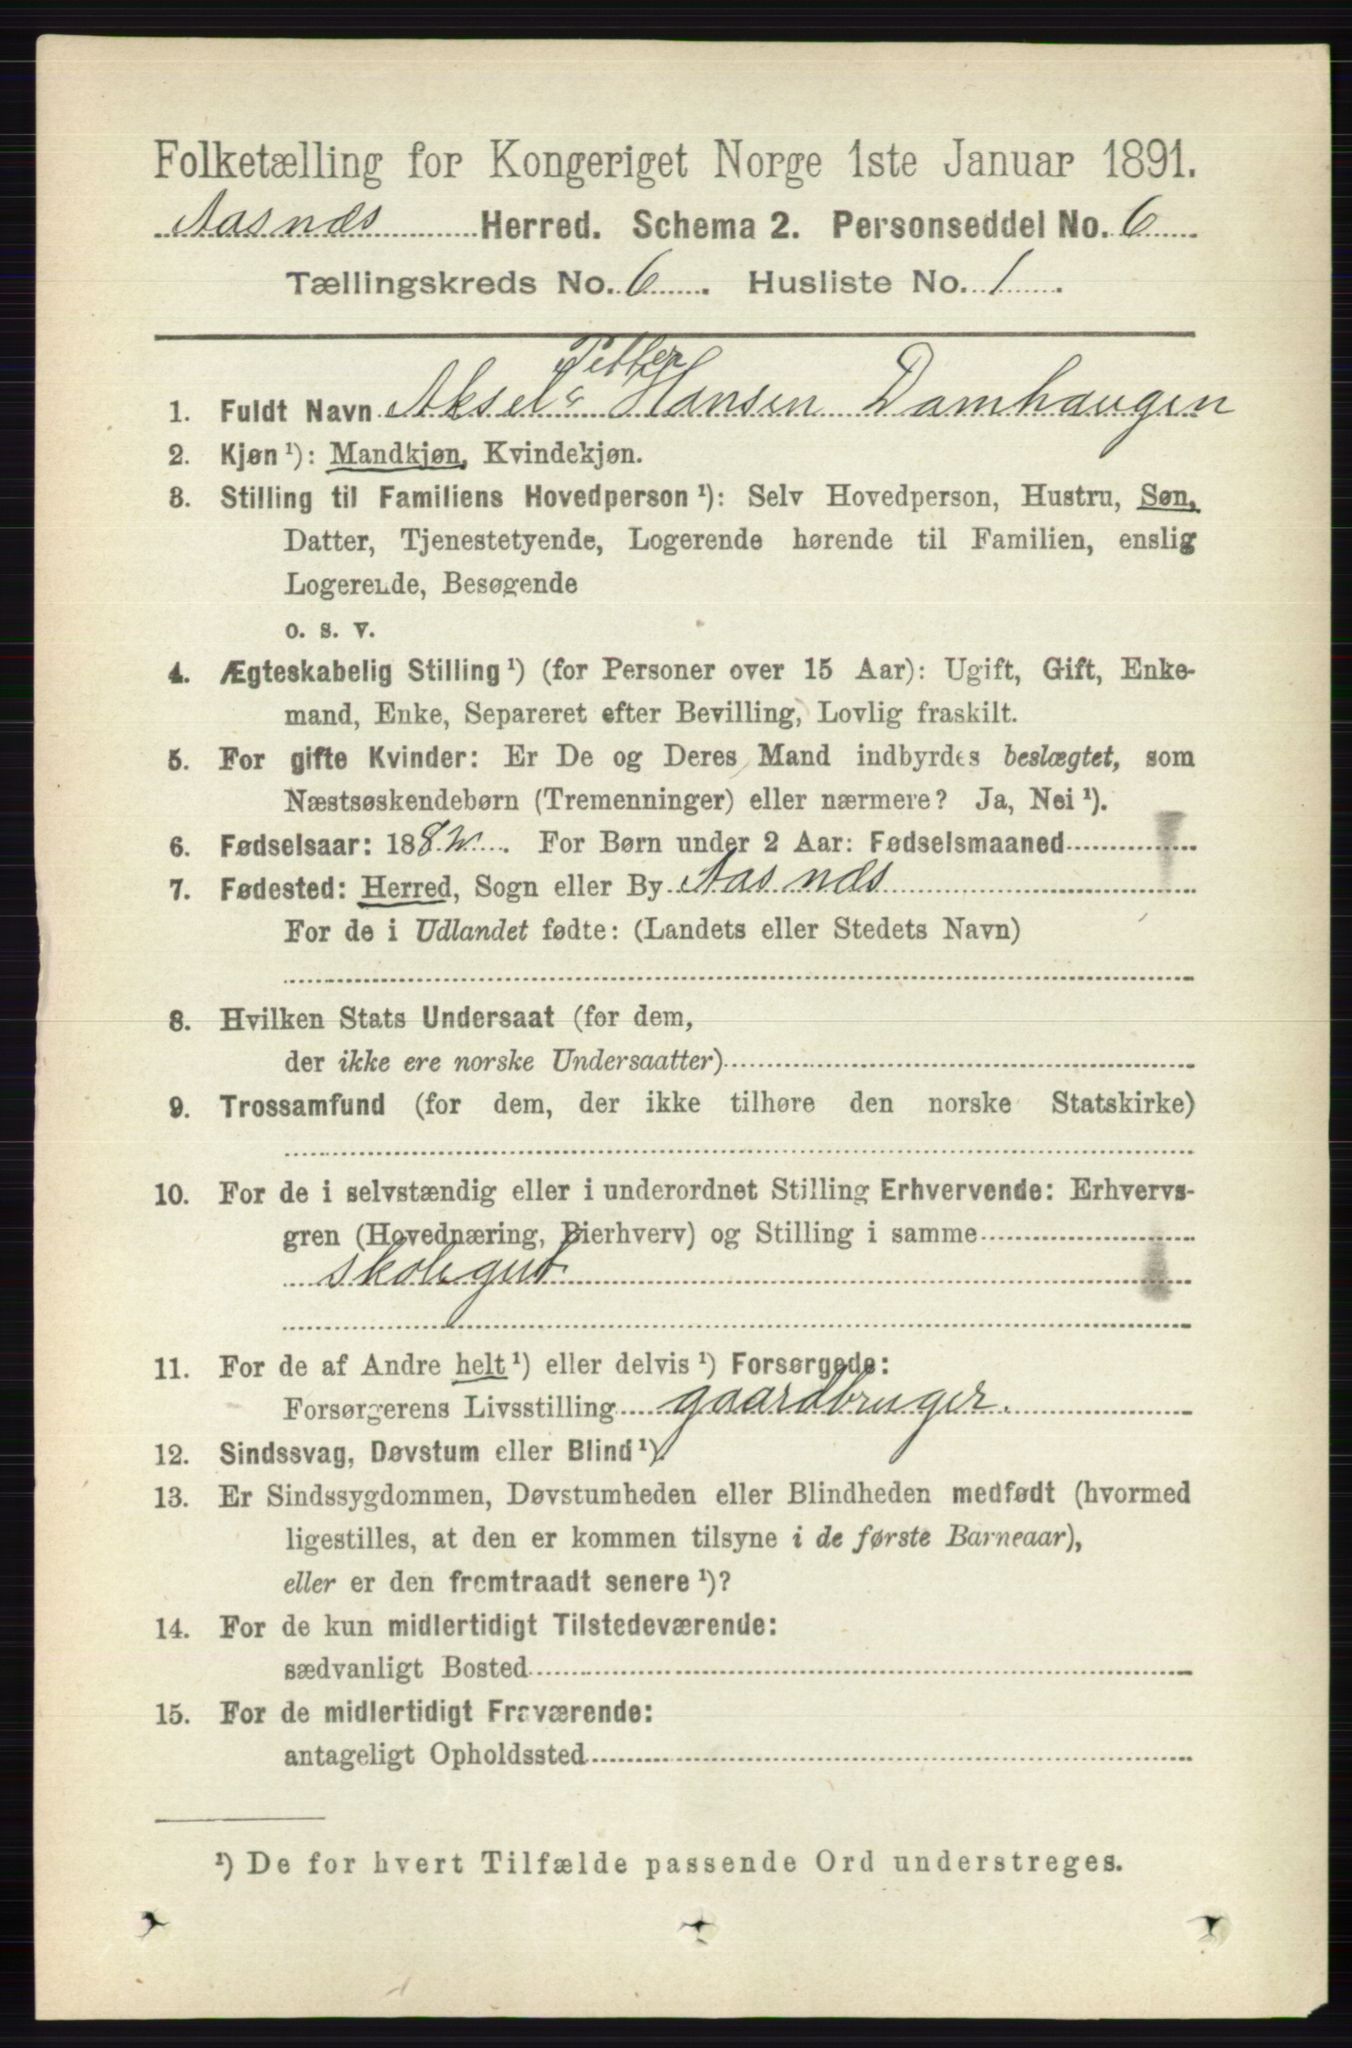 Folketælling for Kongeriget Norge 1ste Januar 1891.
Aasnæs Herred. Schema 2. Personseddel No. 6
Tællingskreds No. 6. Husliste No. 1.
Petter
1. Fuldt Navn Aksel Hansen Damhaugen
2. Kjøn ¹): Mandkjøn, Kvindekjøn.
3. Stilling til Familiens Hovedperson ¹): Selv Hovedperson, Hustru, Søn,
Datter, Tjenestetyende, Logerende hørende til Familien, enslig
Logerende, Besøgende
o. s. v.
4. Ægteskabelig Stilling ¹) (for Personer over 15 Aar): Ugift, Gift, Enke-
mand, Enke, Separeret efter Bevilling, Lovlig fraskilt.
5. For gifte Kvinder: Er De og Deres Mand indbyrdes beslægtet, som
Næstsøskendebørn (Tremenninger) eller nærmere? Ja, Nei ¹).
6. Fødselsaar: 1882. For Børn under 2 Aar: Fødselsmaaned
7. Fødested: Herred, Sogn eller By Aasnæs
For de i Udlandet fødte: (Landets eller Stedets Navn)
8. Hvilken Stats Undersaat (for dem,
der ikke ere norske Undersaatter)
9. Trossamfund (for dem, der ikke tilhøre den norske Statskirke)
10. For de i selvstændig eller i underordnet Stilling Erhvervende: Erhvervs-
gren (Hovednæring, Bierhverv) og Stilling i samme
skolegut
11. For de af Andre helt ¹) eller delvis ¹) Forsørgede:
Forsørgerens Livsstilling gaardbruger.
12. Sindssvag, Døvstum eller Blind ¹).
13. Er Sindssygdommen, Døvstumheden eller Blindheden medfødt (hvormed
ligestilles, at den er kommen tilsyne i de første Barneaar),
eller er den fremtraadt senere ¹)?
14. For de kun midlertidigt Tilstedeværende:
sædvanligt Bosted
15. For de midlertidigt Fraværende:
antageligt Opholdssted
¹) De for hvert Tilfælde passende Ord understreges.